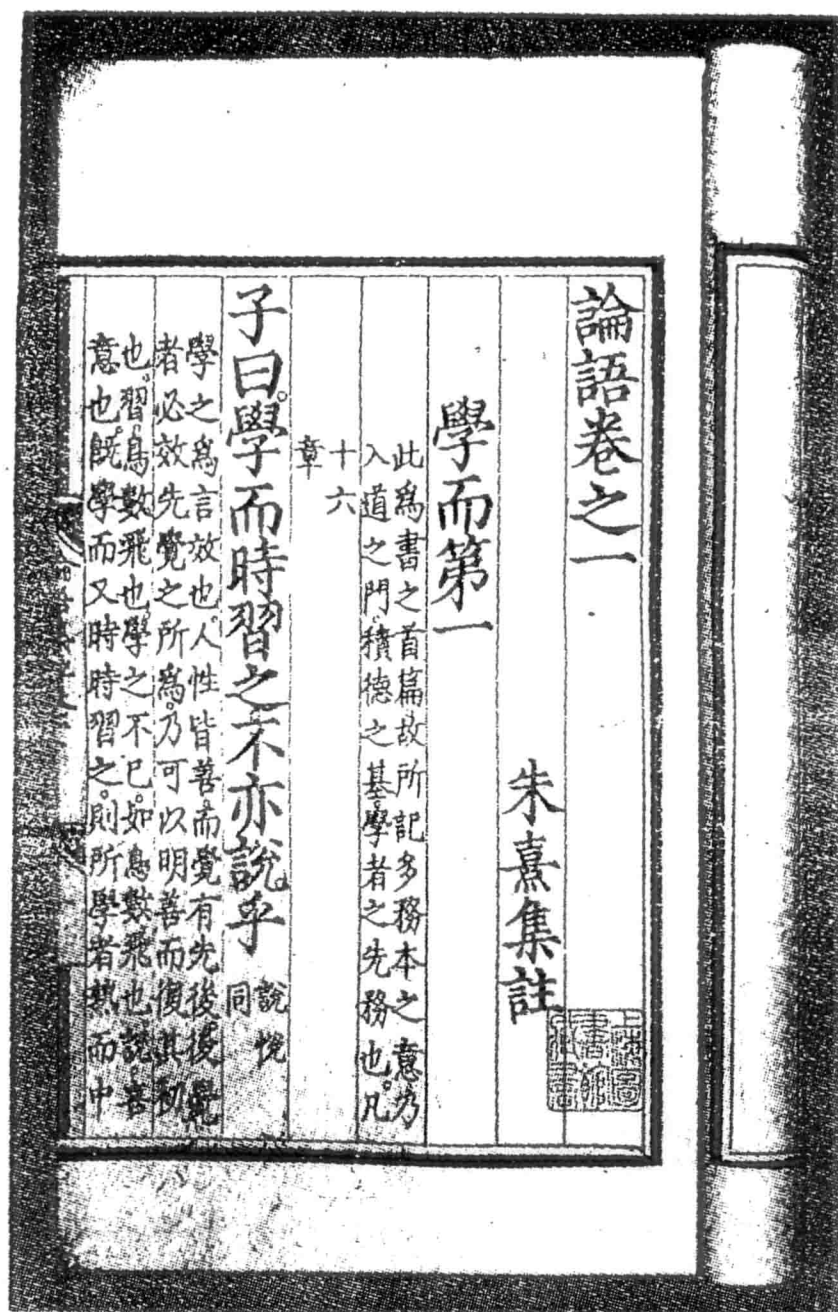 論語卷之一
朱熹集註
學而第一
此爲書之首篇故所記多務本之意乃
入道之門。積德之基。學者之先務也。凡
十六
章
子曰。學而時習之不亦說乎
說悅
同
學之爲言效也。人性皆善。而覺有先後。後覺
者必效先覺之所爲。乃可以明善而復其初
也。習。鳥數飛也。學之不已。如鳥數飛也。說。喜
意也。旣學而又時時習之。則所學者熟而中
上海圖
書館
藏書